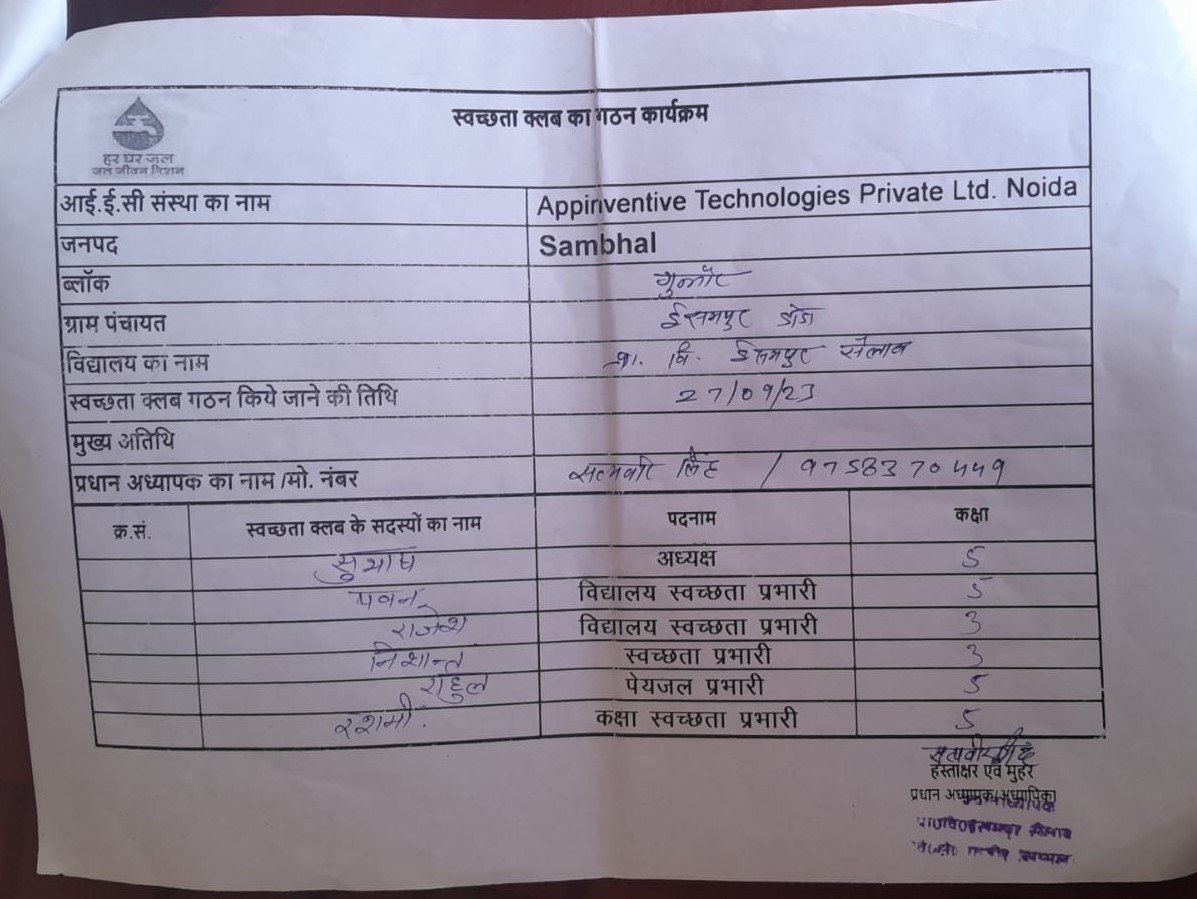 स्वच्छता क्लब का गठन कार्यक्रम
हर घर जल
जल जीवन मिशन
आई.ई.सी संस्था का नाम Appinventive Technologies Private Ltd. Noida
जनपद Sambhal
ब्लॉक गुन्नौर
ग्राम पंचायत ईसमपुर डांडा
विद्यालय का नाम प्रा. वि. ईसमपुर सैलाब
स्वच्छता क्लब गठन किये जाने की तिथि 27/09/23
मुख्य अतिथि
प्रधान अध्यापक का नाम /मो. नंबर सत्यवीर सिंह / 9758370449
क्र.सं. स्वच्छता क्लब के सदस्यों का नाम पदनाम कक्षा
सुभाष अध्यक्ष 5
पवन विद्यालय स्वच्छता प्रभारी 5
राजेश विद्यालय स्वच्छता प्रभारी 3
निशान्त स्वच्छता प्रभारी 3
राहुल पेयजल प्रभारी 5
रशमी कक्षा स्वच्छता प्रभारी 5
सत्यवीर सिंह
हस्ताक्षर एवं मुहर
प्रधान अध्यापक/अध्यापिका